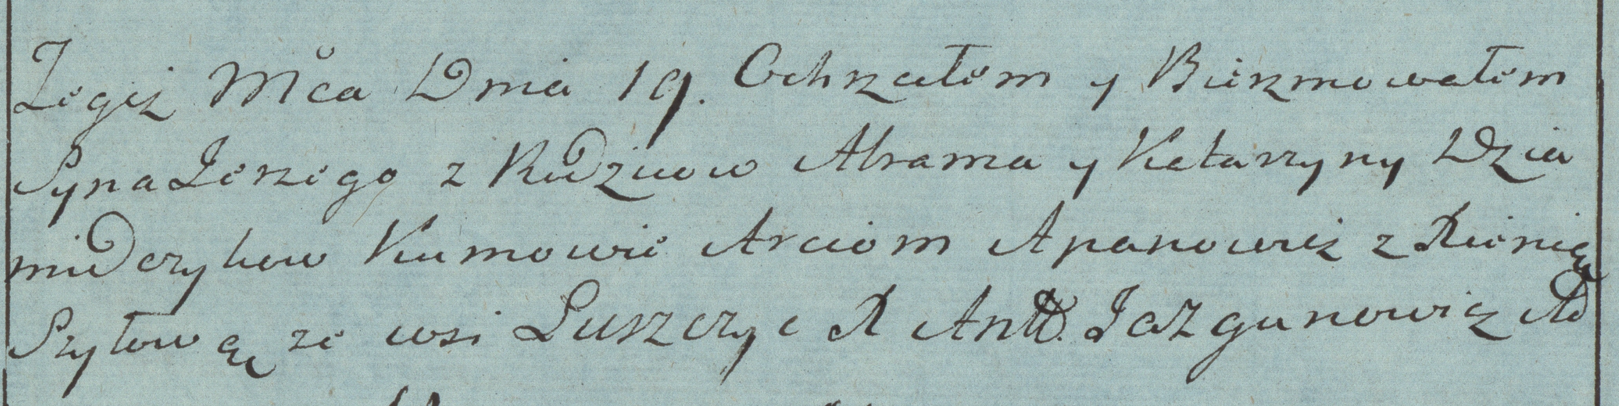 Tegiż Mca Dnia 19. Ochrzciłem y Bierzmowałem
Syna Jerzego z Rodzicow Abrama y Katarzyny Dzia
midczykow Kumowie Arciom Apanowicz z Xienią
Szyłową ze wsi Luszczyc X Ant. Jazgunowicz AD